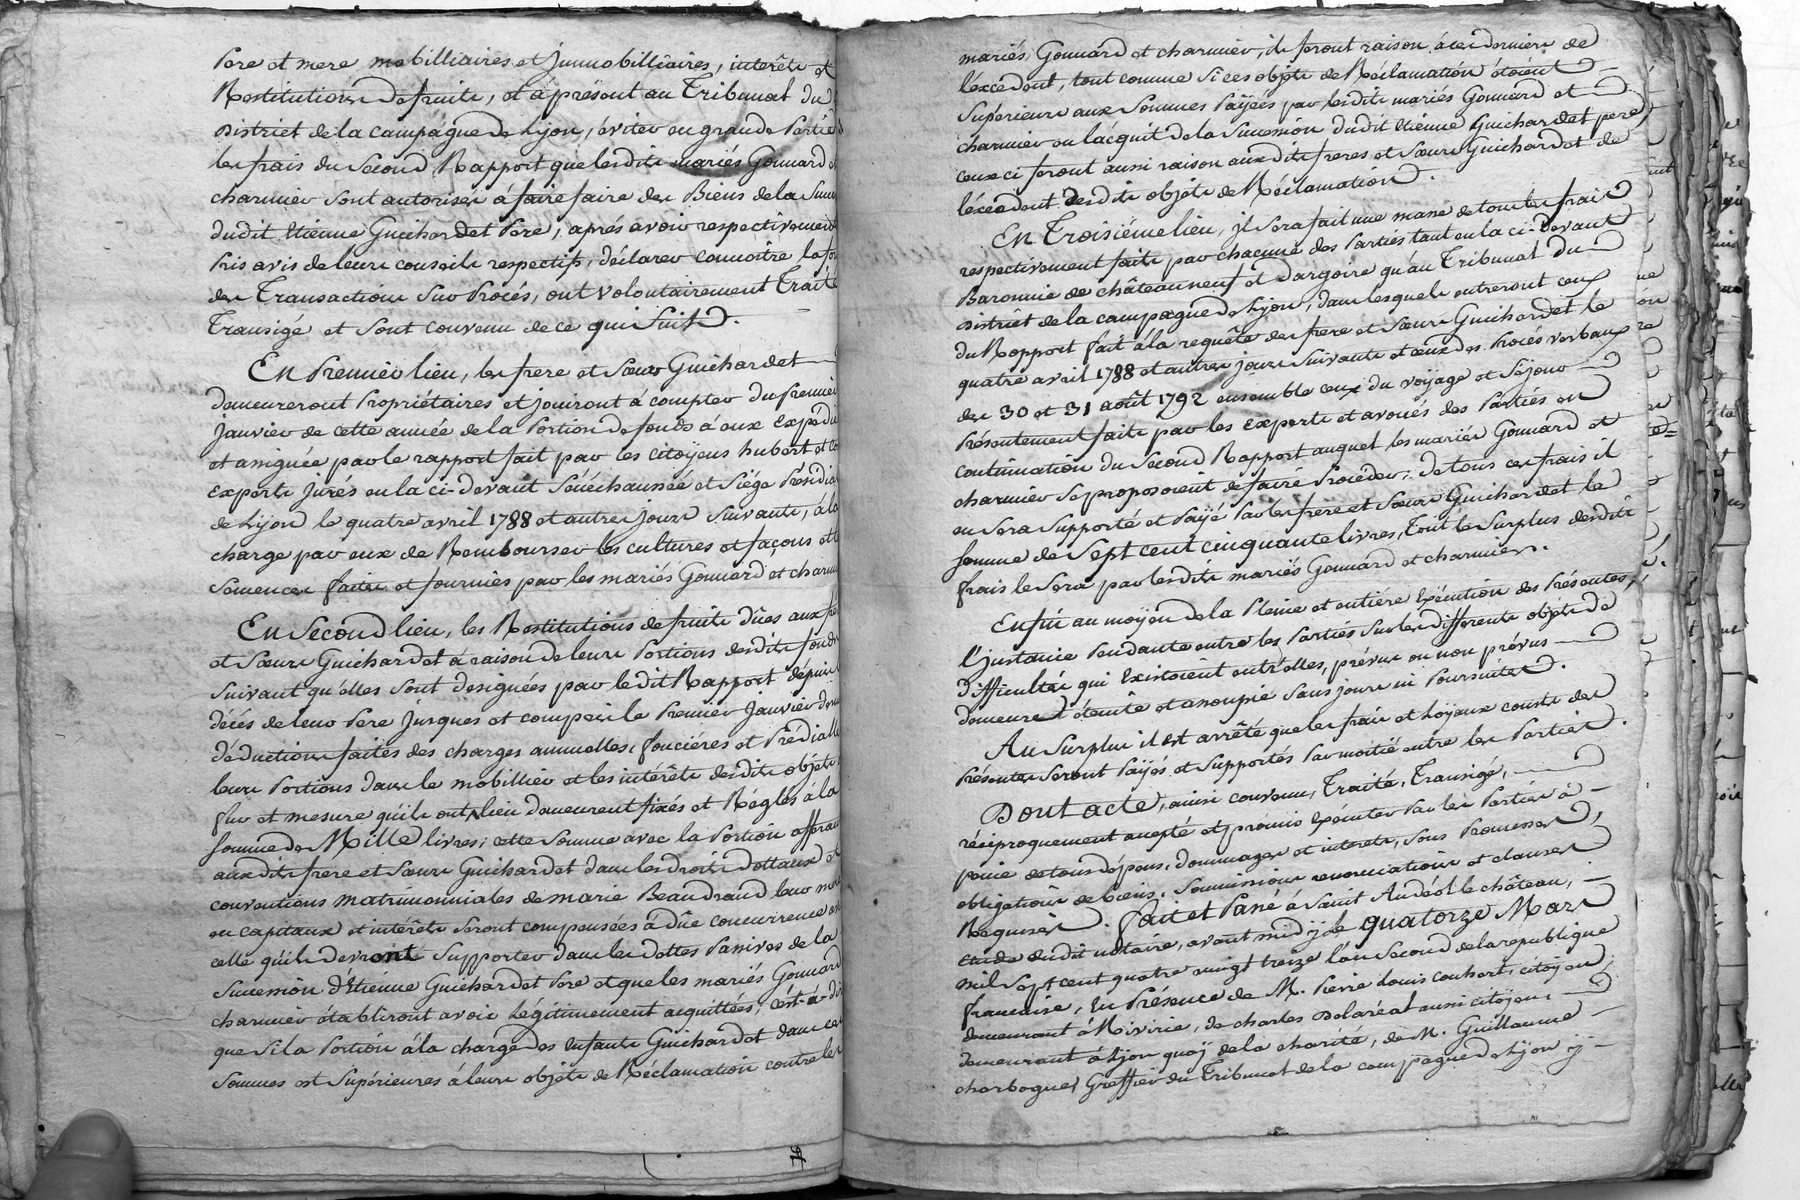 Pere et mere mobilliaires et jmmobilliaires, interêts et
Restitutions de fruits, et à présent au Tribunal du
District de la campagne de Lyon, éviter en grande Partie
les frais du Second Rapport que lesdits mariés Gonnard et
charmier sont autorisés à faire faire des Biens de la Succ
dudit Etienne Guichardet Pere, après avoir respectivement
Pris avis de leurs conseils respectifs, déclarer connoître la for
des Transactions Sur Procés, ont volontairement Traité
Transigé et Sont convenu de ce qui Suit.
En Premier lieu, les frere et Sœurs Guichardet
demeureront Propriétaires et jouiront à compter du Premier
janvier de cette année de la Portion de fonds à eux expédiée
et assignée par le rapport fait par les citoÿens hubert et Co
Experts Jurés en la ci-devant Sénéchaussée et Siége Présidial
de Lyon le quatre avril 1788 et autres jours Suivants, à la
charge par eux de Rembourser les cultures et façons et l
Semences faites et fournies par les mariés Gonnard et charm
En Second lieu, les Restitutions de fruits dûes aux fre
et Sœurs Guichardet à raison de leurs Portions desdits fonds
Suivant qu'elles Sont designées par le dit Rapport depuis l
décés de leur Pere jusques et compris le Premier Janvier der
déductions faites des charges annuelles, fonciéres et Prédialle
leurs Portions dans le mobillier et les intérêts desdits objets
fur et mesure qu'ils ont lieu demeurent fixés et Réglés à la
somme de Mille livres; cette Somme avec la Portion afférante
auxdits frere et Sœurs Guichardet dans les droits dottaux et
conventions matrimonniales de marie Beaudrand leur mere
en capitaux et intérêts Seront compensées à dûe concurrence avec
celle qu'ils devront Supporter dans les dettes Passives de la
Succession d'Etienne Guichardet Pere et que les mariés Gonnard
charmier établiront avoir Légitimement acquittées; c'est-à-dire
que Si la Portion à la charge des enfants Guichardet dans ces
Sommes est Supérieures à leurs objets de Réclamation contre les
mariés Gonnard et charmier, ils feront raison à ces derniers de
l'éxcédent, tout comme Si ces objets de Réclamation étoient
Supérieurs aux Sommes Païées par lesdits mariés Gonnard et
charmier en l'acquit de la Succession dudit Etienne Guichardet pere,
ceux ci feront aussi raison auxdits freres et Sœurs Guichardet de
l'éxcédent desdits objets de Réclamation.
En Troisiéme lieu, jl Sera fait une masse de tous les frais
respectivement faits par chacune des Parties tant en la ci-devant
Baronnie de châteauneuf et dargoire qu'au Tribunal du
District de la campagne de Lyon, dans lesquels entreront ceux
du Rapport fait à la requête des frere et Sœurs Guichardet le
quatre avril 1788 et autres jours Suivants et ceux des Procés verbaux
des 30 et 31 août 1792 ensemble ceux du voÿage et Séjour
Présentement faits par les experts et avoués des Parties en
continuation du Second Rapport auquel les mariés Gonnard et
charmier Se proposoient de faire Procéder; de tous ces frais il
en Sera Supporté et Païé Par les frere et Sœurs Guichardet la
somme de Sept cent cinquante livres, Tout le Surplus desdits
frais le Sera par lesdits mariés Gonnard et charmier.
Enfin au moÿen de la Pleine et entiére Exécution des Présentes,
l'jnstance Pendante entre les Parties Sur les différents objets de
difficultés qui Existoient entr'elles, prévus ou non prévus
demeure éteinte et assoupie Sans jours ni Poursuites.
Au Surplus il est arrêté que les frais et Loÿaux couts des
Présentes Seront Païés et Supportés Par moitié entre les Parties.
Dont acte, ainsi convenu, Traité, Transigé,
réciproquement accepté et promis Exécuter Par les Parties à
peine de tous dépens, dommages et interets, Sous Promesses,
obligations de biens, Soumissions renonciations et clauses
Requises. Fait et Passé à Saint Andéol le château,
étude dudit notaire, avant midÿ le quatorze Mars
mil Sept cent quatre vingt treize l'an Second de la republique
française, En Présence de M. Pierre Louis couhert, citoÿen,
demeurant à Riverie, de charles Delaréal aussi citoÿen,
demeurant à Lyon quaÿ de la charité, de M. Guillaume
charbogne, Greffier du Tribunal de la campagne de Lyon ÿ